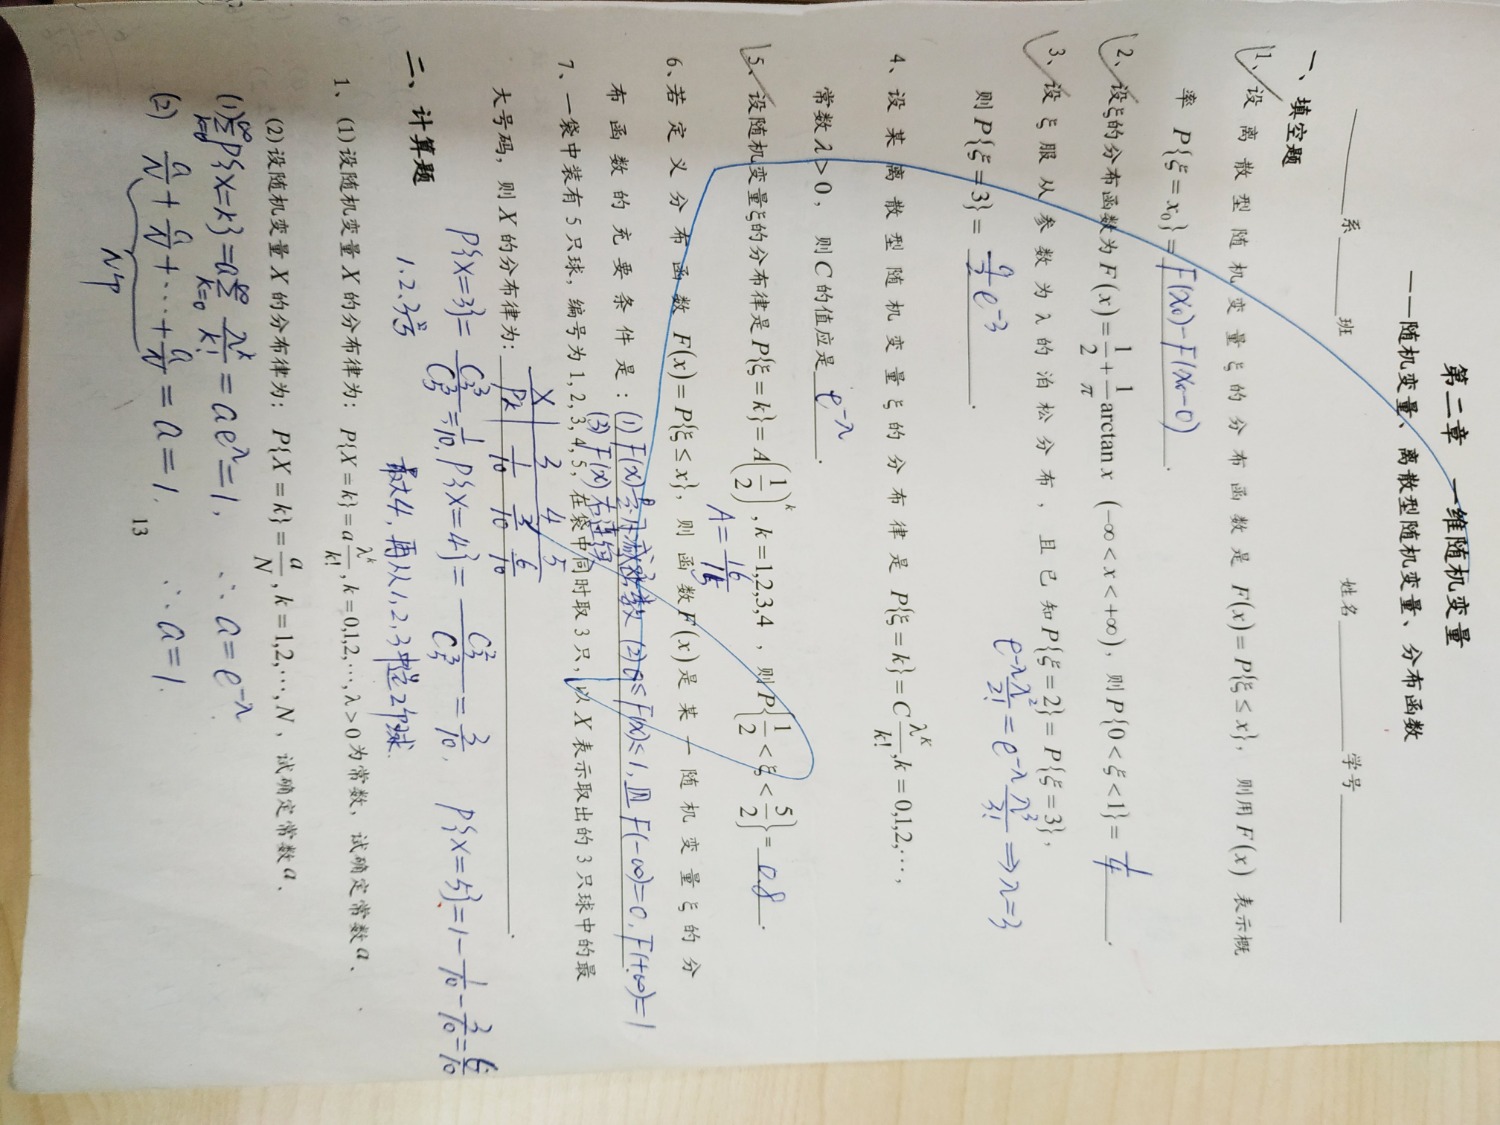 第二章 一维随机变量
——随机变量、离散型随机变量、分布函数
系 班 姓名 学号
一、填空题
1、设离散型随机变量ξ的分布函数是 F(x)=P{ξ≤x}, 则用F(x) 表示概
率 P{ξ=x₀}= F(x₀)-F(x₀-0) .
2、设ξ的分布函数为F(x)=1/2+1/π arctan x (-∞<x<+∞), 则P{0<ξ<1}= 1/4 .
3、设ξ服从参数为λ的泊松分布, 且已知P{ξ=2}=P{ξ=3},
e^{-λ} λ²/2! = e^{-λ} λ³/3! ⇒ λ=3
则P{ξ=3}= 9/2 e^{-3} .
4、设某离散型随机变量ξ的分布律是 P{ξ=k}=C λ^K/k!, k=0,1,2,⋯,
常数λ>0, 则C的值应是 e^{-λ} .
5、设随机变量ξ的分布律是P{ξ=k}=A(1/2)^k, k=1,2,3,4, 则P{1/2<ξ<5/2}= 0.8 .
A=16/15
6、若定义分布函数 F(x)=P{ξ≤x}, 则函数F(x)是某一随机变量ξ的分
布函数的充要条件是: (1) F(x)是不减函数 (2) 0≤F(x)≤1, 且F(-∞)=0, F(+∞)=1
(3) F(x)右连续
7、一袋中装有5只球, 编号为1,2,3,4,5, 在袋中同时取3只, 以X表示取出的3只球中的最
大号码, 则X的分布律为: .
X 3 4 5
Pk 1/10 3/10 6/10
P{X=3}= C₃³/C₅³ = 1/10, P{X=4}= C₃²/C₅³ = 3/10, P{X=5}=1-1/10-3/10=6/10
1.2.3
最大4, 再从1,2,3中选2个球.
二、计算题
1、(1)设随机变量X的分布律为: P{X=k}=a λ^k/k!, k=0,1,2,⋯, λ>0为常数, 试确定常数a、
(2)设随机变量X的分布律为: P{X=k}=a/N, k=1,2,⋯,N, 试确定常数a、
(1) ∑_{k=0}^∞ P{X=k}=a∑_{k=0}^∞ λ^k/k! = ae^λ=1, ∴ a=e^{-λ}
(2) a/N+a/N+⋯+a/N=a=1. ∴ a=1.
N个
13